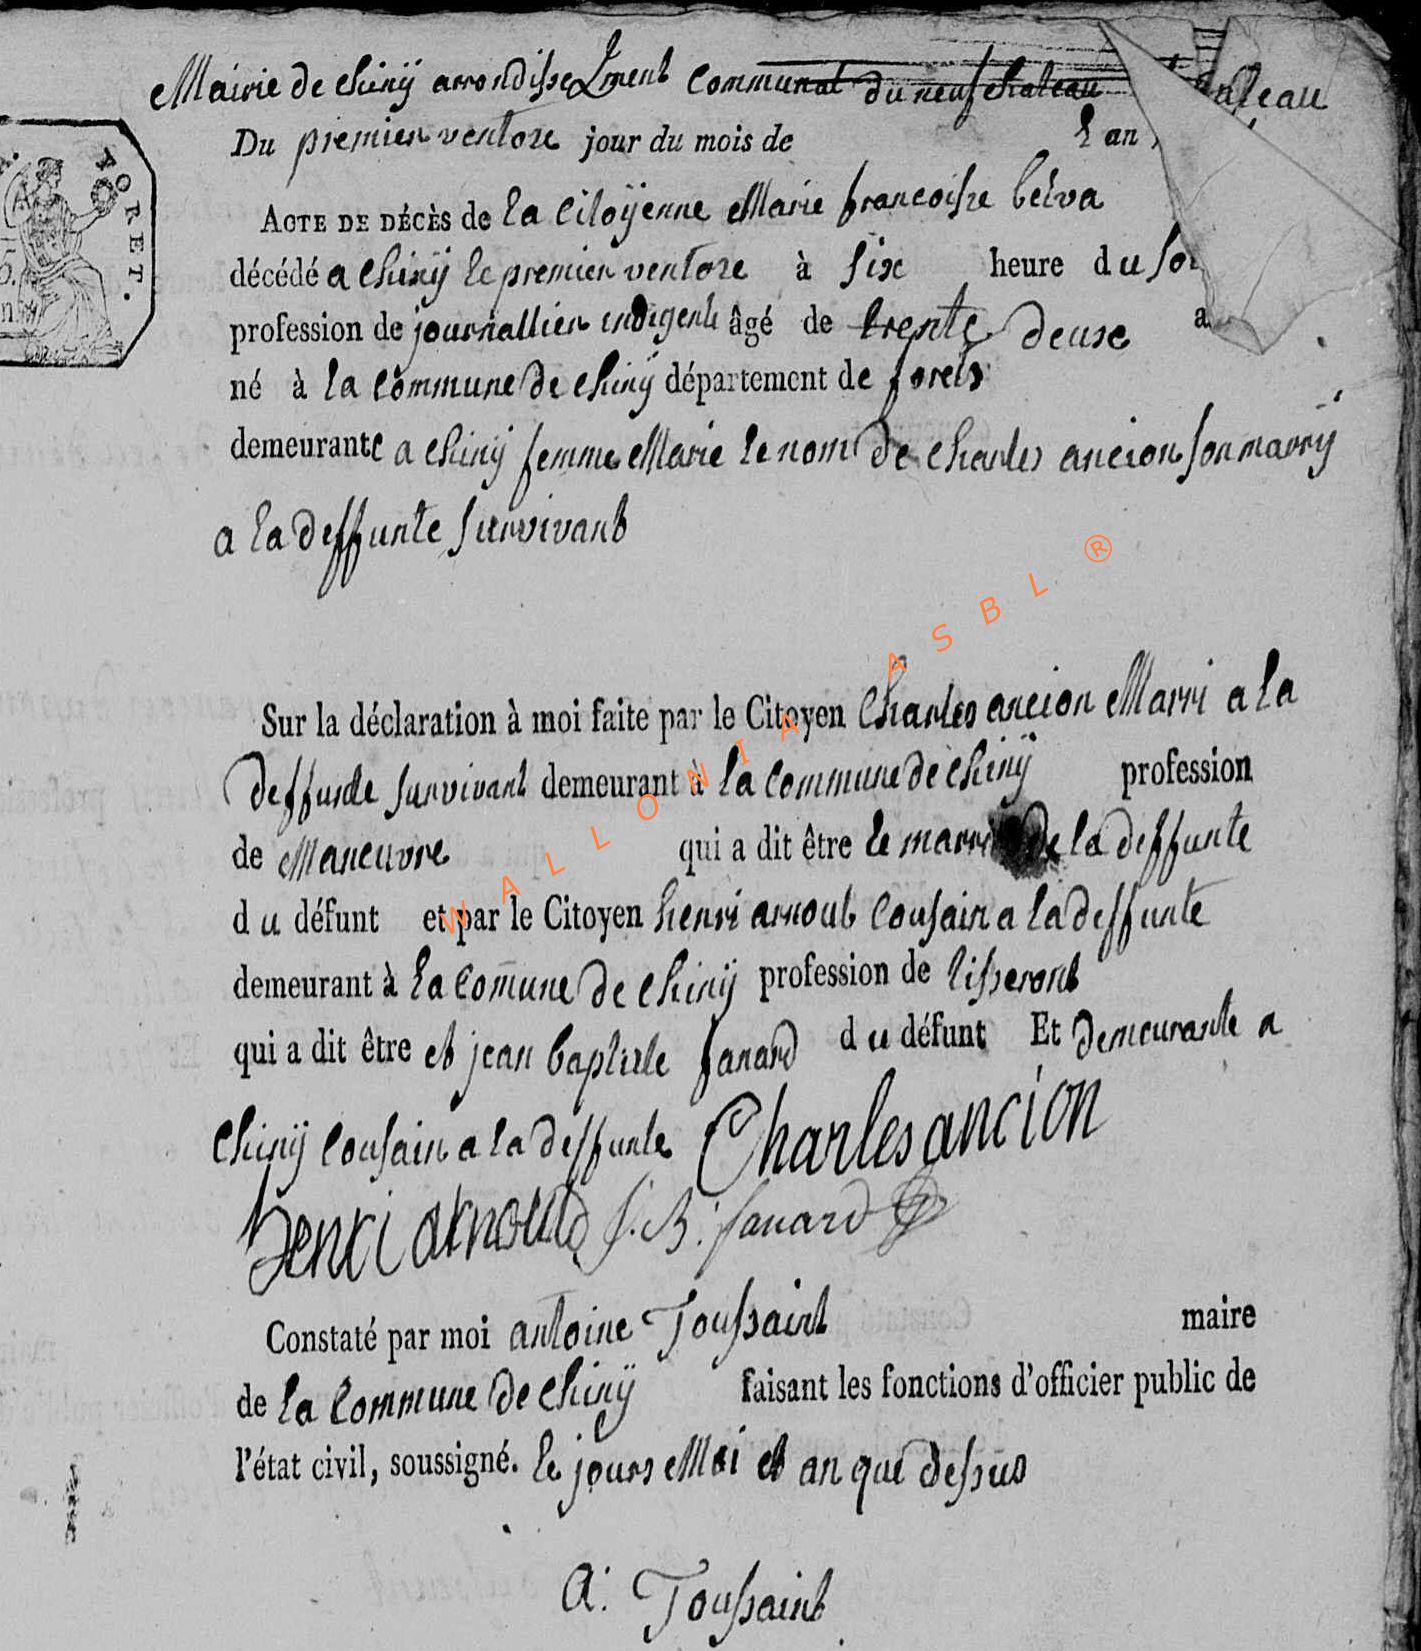 Mairie de chinÿ arrondissement communal du neufchateau
Du premier ventore jour du mois de l an
ACTE DE DÉCÈS de la citoÿenne Marie francoisse belva
décédé a chinÿ le premier ventore à six heure du soi
FORET.
profession de journallier indigente âgé de trente deuse a
né à la commune de chinÿ département de forets
demeurante a chinÿ femme Marie le nom de charles ancion son marrÿ
a la deffunte survivant
WALLONIA ASBL ®
Sur la déclaration à moi faite par le Citoyen Charles ancion Marri a la
deffunte survivant demeurant à la commune de chinÿ profession
de Maneuvre qui a dit être le marri de la deffunte
du défunt et par le Citoyen henri arnout cousain a la deffunte
demeurant à la comune de chinÿ profession de tisseront
qui a dit être et jean baptiste fanard du défunt Et demeurante a
chinÿ cousain a la deffunte Charles ancion
henri arnould J. B. fanard
Constaté par moi antoine Toussaint maire
de la commune de chinÿ faisant les fonctions d'officier public de
l'état civil, soussigné. le jours Moi et an que dessus
a. Toussaint